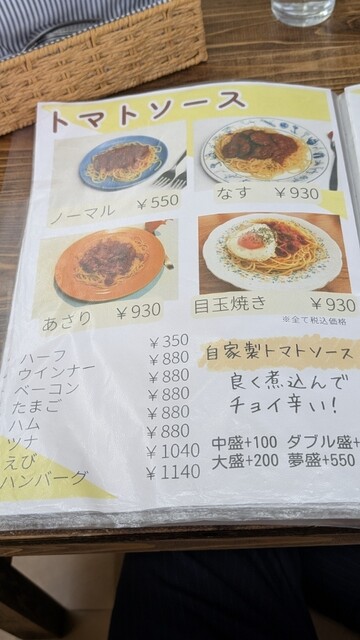 トマトソース
ノーマル ￥550
なす ￥930
あさり ￥930
目玉焼き ￥930
※全て税込価格
ハーフ ￥350
ウインナー ￥880
ベーコン ￥880
たまご ￥880
ハム ￥880
ツナ ￥880
えび ￥1040
ハンバーグ ￥1140
自家製トマトソース
良く煮込んで
チョイ辛い!
中盛+100 ダブル盛+
大盛+200 夢盛+550